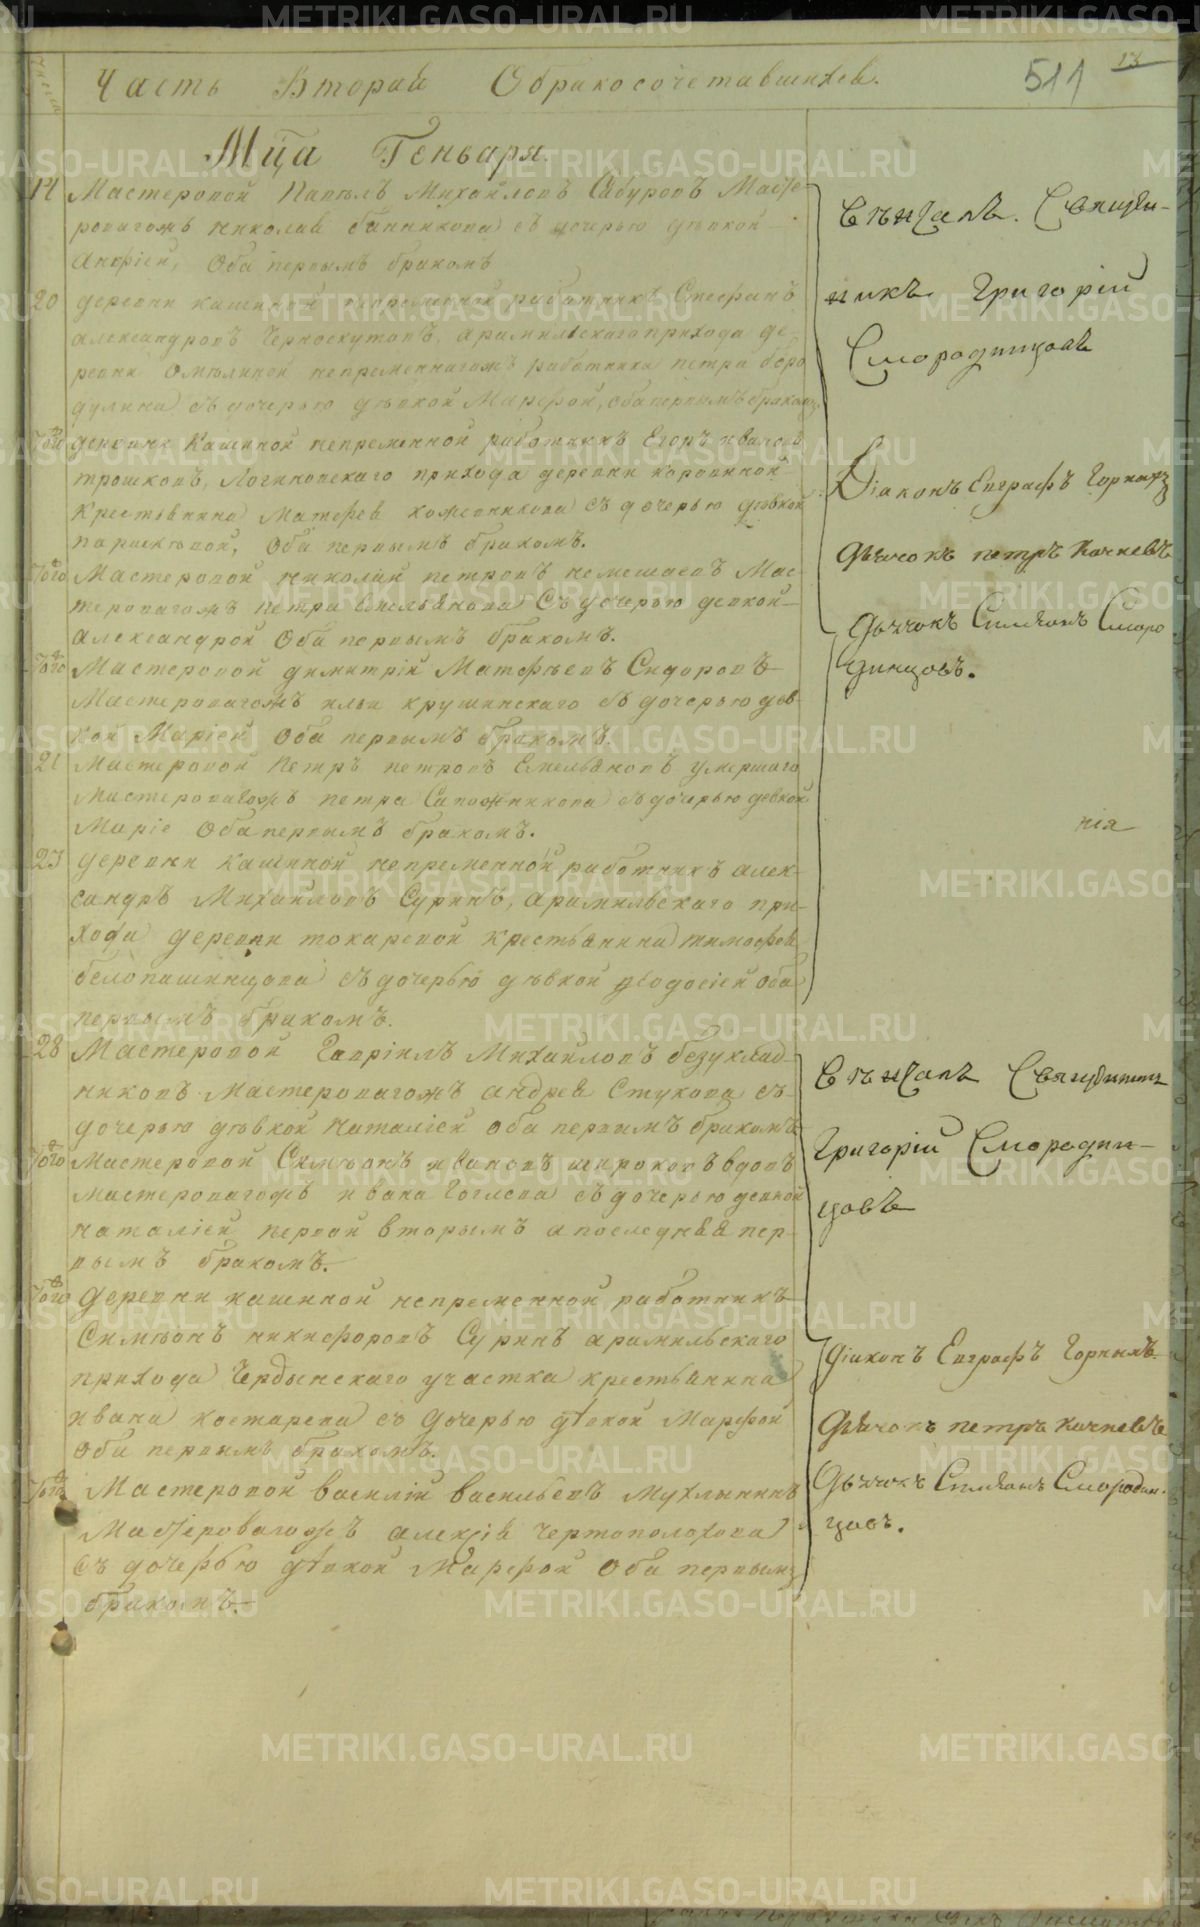 Часть Вторая О бракосочетавшихся.
511
13
Мца Геньваря.
14 Мастеровой Павелъ Михайловъ Сабуровъ Масте
ровагожъ Николая Банникова съ дочерью девкой
Анфисей, Оба первымъ бракомъ
20 деревни кашиной непременной работникъ Стефанъ
александровъ Черноскутовъ, арамильскаго прихода де-
ревни непременнагожъ работника петра боро
дулина съ дочерью девкой Марфой, оба первымъ бракомъ
Того деревни Кашиной непременной работникъ Егоръ ивановъ
трошковъ, Логиновскаго прихода деревни
Крестьянина Матфея кожевникова съ дочерью девкой
параскевой, Оба первымъ бракомъ.
Того Мастеровой николай петровъ немешаевъ Мас-
теровагожъ петра Емельянова Съ дочерью девкой
александрой Оба первымъ бракомъ.
Того Мастеровой димитрий Матфеевъ Сидоровъ
Мастеровагожъ ильи крушинскаго съ дочерью дев-
кой Марiей Оба первымъ бракомъ.
21 Мастеровой Петръ петровъ Емельяновъ умершаго
Мастеровагожъ петра Сапожникова съ дочерью девкой
Марiе Оба первымъ бракомъ.
23 деревни кашиной непременной работникъ алек-
сандръ Михайловъ Суринъ, арамильскаго при-
хода деревни токаревой крестьянина тимофея
белопашинцова съ дочерью дѣвкой феодосiей оба
первымъ бракомъ.
28 Мастеровой Гаврiилъ Михайловъ безуклад-
никовъ мастеровагожъ андрея Стукова съ
дочерью дѣвкой наталiей оба первымъ бракомъ
Того Мастеровой Симеонъ ивановъ широковъ вдовъ
мастеровагожъ ивана Гоглева съ дочерью девкой
наталiей первой вторымъ а последняя пер-
вымъ бракомъ.
Того деревни кашиной непременной работникъ
Симеонъ никифоровъ Суринъ арамильскаго
прихода Чердынскаго участка крестьянина
ивана костарева съ дочерью дѣвкой Марфой
оба первымъ бракомъ.
Того Мастеровой василiй васильевъ Мухлынинъ
Мастеровагожъ алексiя чертополохова
Съ дочерью дѣвкой Марфой Оба первымъ
бракомъ.
Вѣнчалъ. Священ-
никъ Григорiй
Смородинцовъ
Дiаконъ Евграфъ Горныхъ
Дьячокъ петръ Кочневъ
Дьячокъ Симеонъ Сморо
динцовъ.
нiя
Вѣнчалъ Священникъ
Григорiй Смородин-
цовъ
Дiаконъ Евграфъ Горныхъ.
Дьячокъ петръ Кочневъ
Дьячокъ Симеонъ Смородин-
цовъ.
METRIKI.GASO-URAL.RU